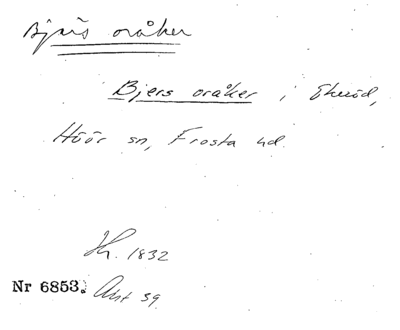 Bjärs oråker
Bjers oråker i Ekeröd,
Höör sn, Frosta hd.
1832
Nr 6853. Akt 59